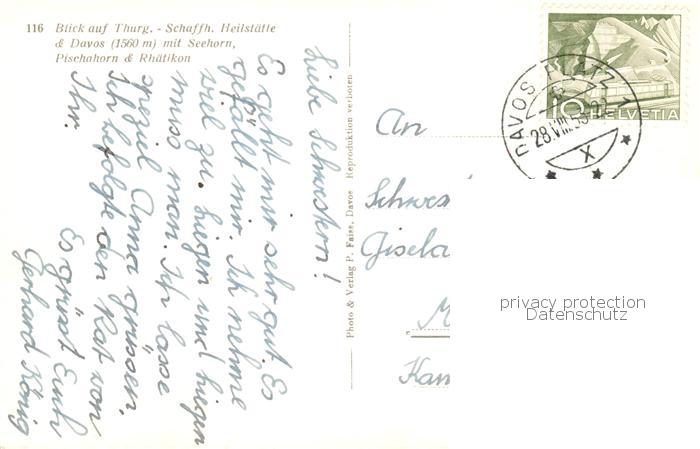 116 Blick auf Thurg. - Schaffh. Heilstätte
& Davos (1560 m) mit Seehorn,
Pischahorn & Rhätikon
Liebe Schwestern!
Es geht mir sehr gut. Es
gefällt mir. Ich nehme
viel zu. Liegen und liegen
muss man. Ich lasse
speziel Anna grüssen,
Ich befolgte den Rat von
Ihr.
Es grüsst Euch
Gerhard König
Photo & Verlag P. Faiss, Davos Reproduktion verboten
An
Schwes
Gisela
M
Kan
DAVOS PLATZ 1
28.VIII.53
X
10 HELVETIA
privacy protection
Datenschutz